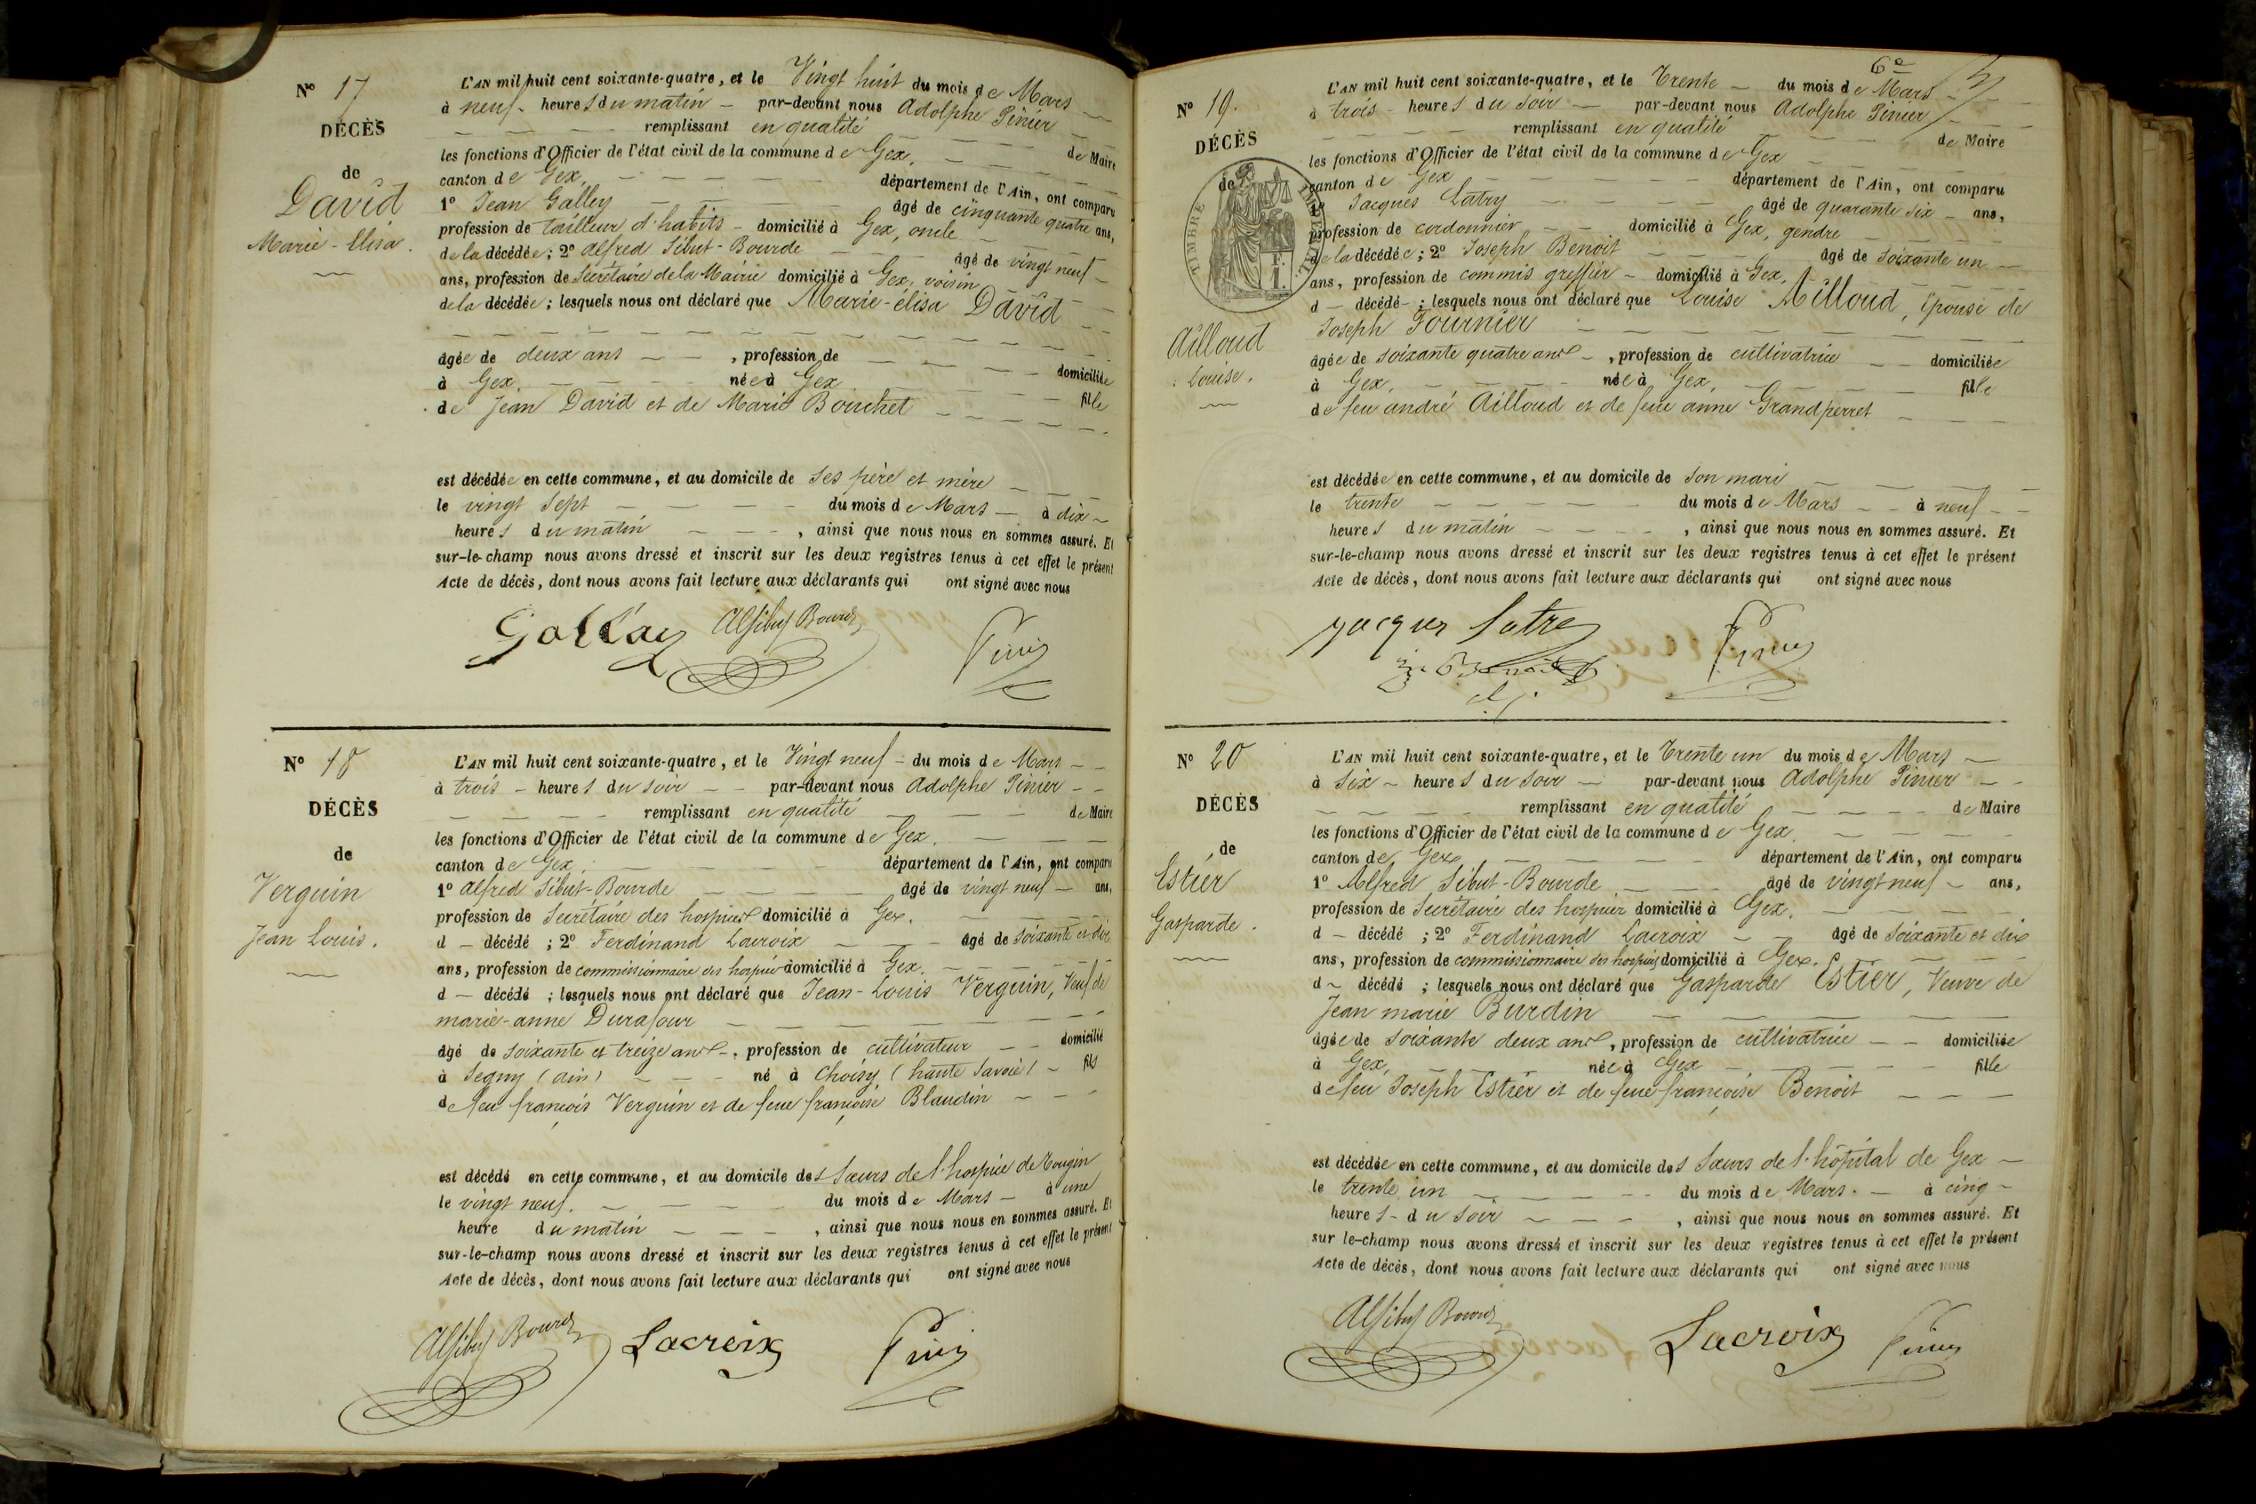 N° 17
DÉCÈS
de
David
Marie-Elisa.
L'AN mil huit cent soixante-quatre, et le Vingt huit du mois de Mars
à neuf heures du matin par-devant nous Adolphe Pinier
remplissant en qualité de Maire
les fonctions d'Officier de l'état civil de la commune de Gex.
canton de Gex, département de l'Ain, ont comparu
1° Jean Galley âgé de cinquante quatre ans,
profession de tailleur d'habits domicilié à Gex, oncle
de la décédée; 2° Alfred Sibut-Bourde âgé de vingt neuf
ans, profession de Secrétaire de la Mairie domicilié à Gex, voisin
de la décédée; lesquels nous ont déclaré que Marie-élisa David
âgée de deux ans, profession de domiciliée
à Gex. née à Gex fille
de Jean David et de Marie Bouchet
est décédée en cette commune, et au domicile de ses père et mère
le vingt sept du mois de Mars à dix
heures du matin, ainsi que nous nous en sommes assuré. Et
sur-le-champ nous avons dressé et inscrit sur les deux registres tenus à cet effet le présent
Acte de décès, dont nous avons fait lecture aux déclarants qui ont signé avec nous
Gallay Alf Sibut Bourde Pinier
N° 18
DÉCÈS
de
Verguin
Jean Louis.
L'AN mil huit cent soixante-quatre, et le Vingt neuf du mois de Mars
à trois heures du soir par-devant nous Adolphe Pinier
remplissant en qualité de Maire
les fonctions d'Officier de l'état civil de la commune de Gex.
canton de Gex. département de l'Ain, ont comparu
1° Alfred Sibut-Bourde âgé de vingt neuf ans,
profession de Secrétaire des hospices domicilié à Gex.
d décédé; 2° Ferdinand Lacroix âgé de soixante et dix
ans, profession de commissionnaire des hospices domicilié à Gex.
d décédé; lesquels nous ont déclaré que Jean-Louis Verguin, Veuf de
marie-anne Durafour
âgé de soixante et treize ans, profession de cultivateur domicilié
à Segny (ain) né à Choisy (haute Savoie) fils
de feu françois Verguin et de feue françoise Blaudin
est décédé en cette commune, et au domicile des Sœurs de l'hospice de Tougin
le vingt neuf. du mois de Mars à une
heure du matin, ainsi que nous nous en sommes assuré. Et
sur-le-champ nous avons dressé et inscrit sur les deux registres tenus à cet effet le présent
Acte de décès, dont nous avons fait lecture aux déclarants qui ont signé avec nous
Alf Sibut Bourde Lacroix Pinier
6e
N° 19.
DÉCÈS
de
TIMBRE IMPÉRIAL
Ailloud
Louise.
L'AN mil huit cent soixante-quatre, et le Trente du mois de Mars
à trois heures du soir par-devant nous Adolphe Pinier
remplissant en qualité de Maire
les fonctions d'Officier de l'état civil de la commune de Gex
canton de Gex département de l'Ain, ont comparu
Jacques Latry âgé de quarante six ans,
profession de cordonnier domicilié à Gex, gendre
de la décédée; 2° Joseph Benoit âgé de soixante un
ans, profession de commis greffier domicilié à Gex,
d décédé; lesquels nous ont déclaré que Louise Ailloud, Epouse de
Joseph Fournier
âgée de soixante quatre ans, profession de cultivatrice domiciliée
à Gex, née à Gex, fille
de feu andré Ailloud et de feue anne Grandperret
est décédée en cette commune, et au domicile de son mari
le trente du mois de Mars à neuf
heures du matin, ainsi que nous nous en sommes assuré. Et
sur-le-champ nous avons dressé et inscrit sur les deux registres tenus à cet effet le présent
Acte de décès, dont nous avons fait lecture aux déclarants qui ont signé avec nous
Jacques Latre Pinier
Benoit
N° 20
DÉCÈS
de
Estier
Gasparde.
L'AN mil huit cent soixante-quatre, et le Trente un du mois de Mars
à Six heures du soir par-devant nous Adolphe Pinier
remplissant en qualité de Maire
les fonctions d'Officier de l'état civil de la commune de Gex.
canton de Gex. département de l'Ain, ont comparu
1° Alfred Sibut-Bourde âgé de vingt neuf ans,
profession de Secrétaire des hospices domicilié à Gex.
d décédé; 2° Ferdinand Lacroix âgé de soixante et dix
ans, profession de commissionnaire des hospices domicilié à Gex.
d décédé; lesquels nous ont déclaré que Gasparde Estier, Veuve de
Jean marie Burdin
âgée de soixante deux ans, profession de cultivatrice domiciliée
à Gex, née à Gex fille
de feu Joseph Estier et de feue françoise Benoit
est décédée en cette commune, et au domicile des Sœurs de l'hôpital de Gex
le trente un du mois de Mars. à cinq
heures du soir, ainsi que nous nous en sommes assuré. Et
sur le-champ nous avons dressé et inscrit sur les deux registres tenus à cet effet le présent
Acte de décès, dont nous avons fait lecture aux déclarants qui ont signé avec nous
Alf Sibut Bourde Lacroix Pinier